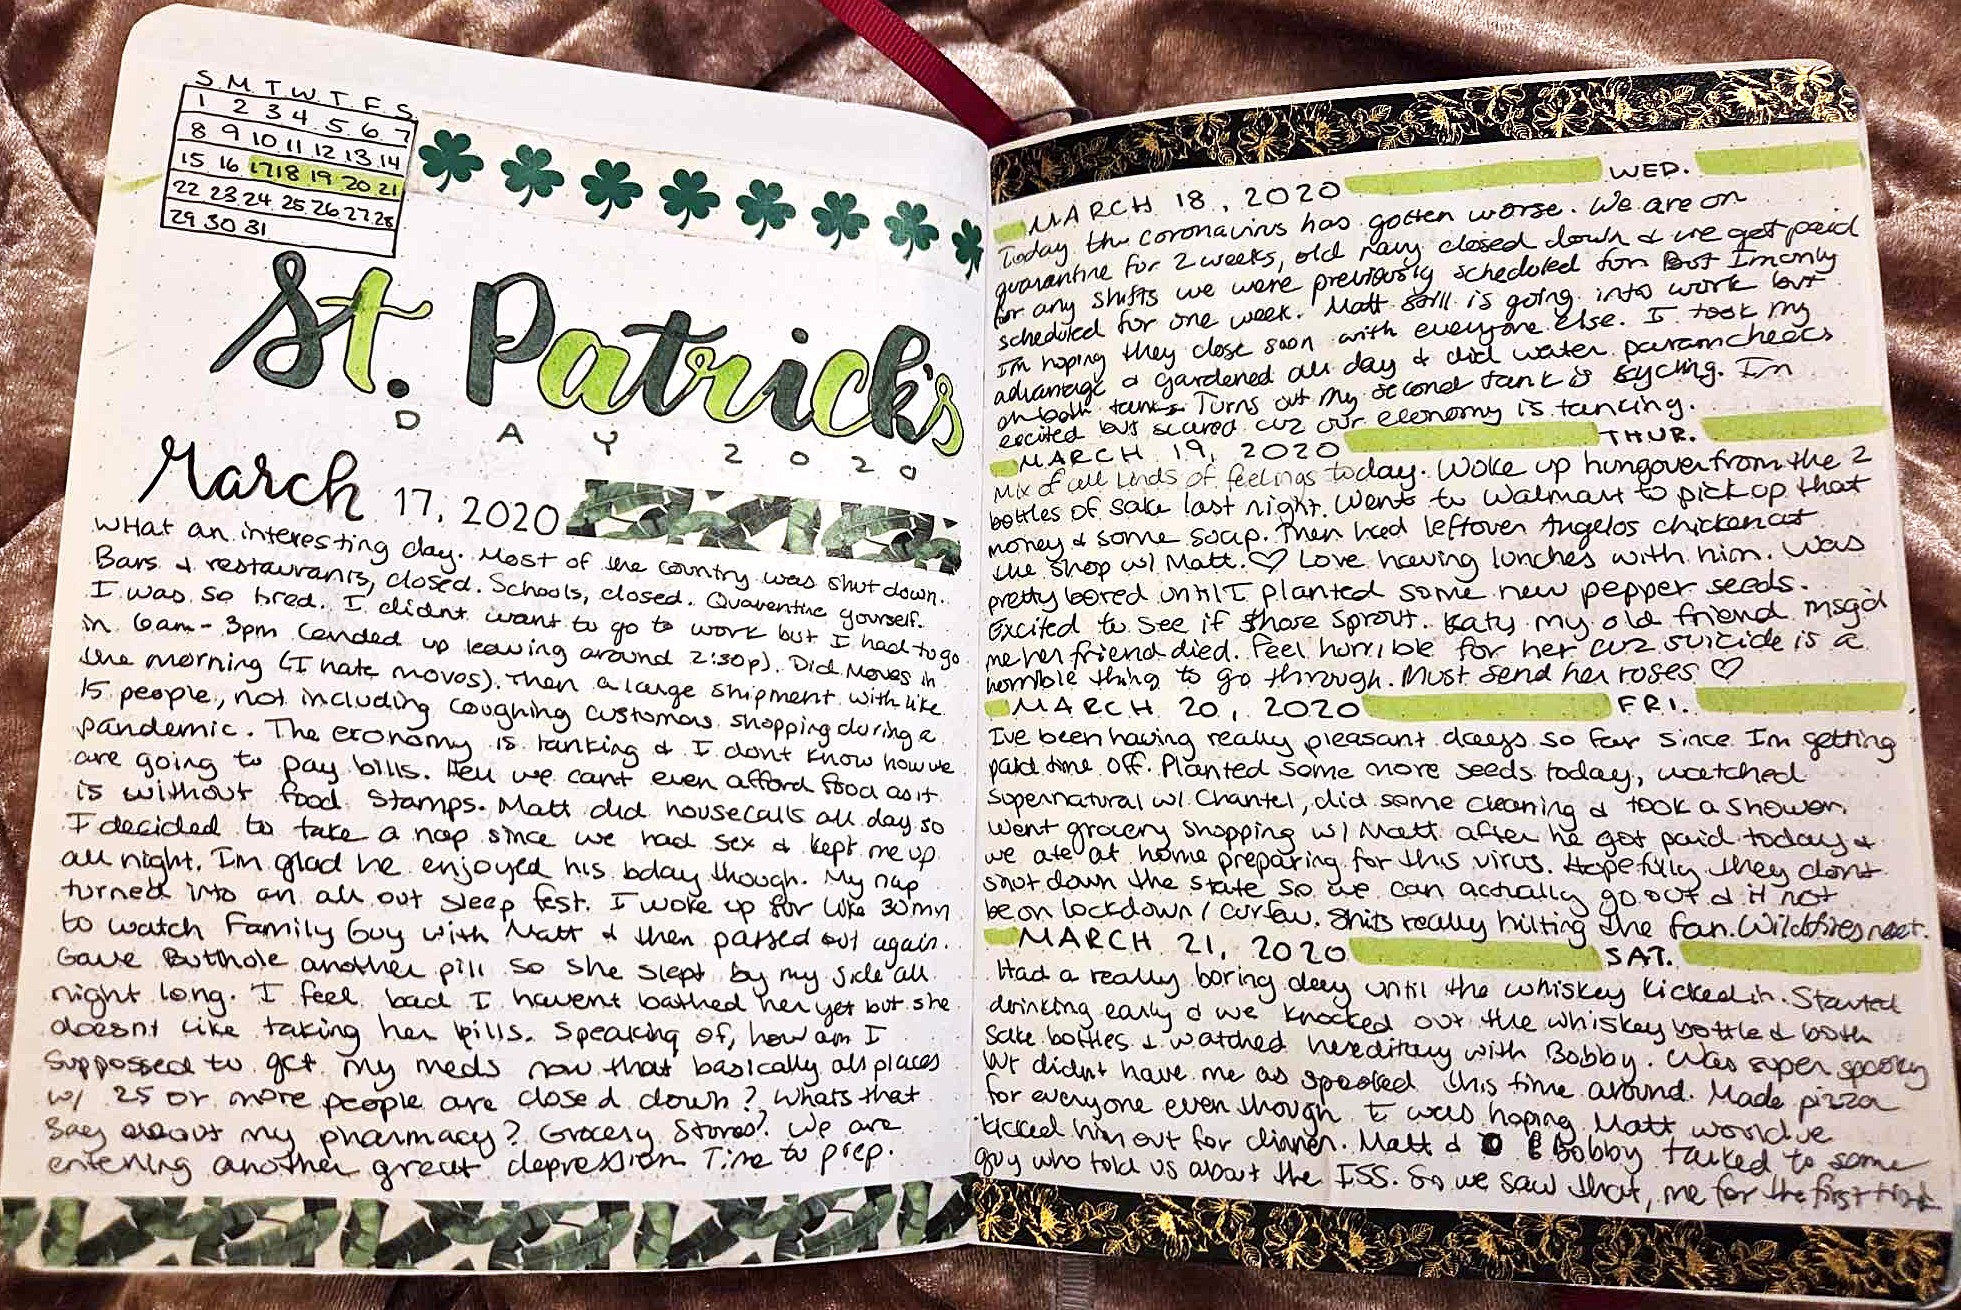 S M T W T F S
1 2 3 4 5 6 7
8 9 10 11 12 13 14
15 16 17 18 19 20 21
22 23 24 25 26 27 28
29 30 31
St. Patrick's
DAY 2020
March 17, 2020
WHat an interesting day. Most of the country was shut down.
Bars & restaurants, closed. Schools, closed. Quarentine yourself.
I was so tired. I didnt want to go to work but I had to go
in 6am-3pm (ended up leaving around 2:30p). Did Moves in
the morning (I hate moves). Then a large shipment with like
15 people, not including coughing customers shopping during a
pandemic. The economy is tanking & I dont know how we
are going to pay bills. Hell we cant even afford food as it
is without food stamps. Matt did housecalls all day so
I decided to take a nap since we had sex & kept me up
all night. Im glad he enjoyed his bday though. My nap
turned into an all out sleep fest. I woke up for like 30mn
to watch Family Guy with Matt & then passed out again.
Gave Butthole another pill so she slept by my side all
night long. I feel bad I havent bathed her yet but she
doesnt like taking her pills. Speaking of, how am I
suppossed to get my meds now that basically all places
w/ 25 or more people are closed down? Whats that
say about my pharmacy? Grocery Stores? We are
entering another great depression Time to prep.
MARCH 18, 2020 WED.
Today the coronavirus has gotten worse. We are on
quarantine for 2 weeks, old navy closed down & we get paid
for any shifts we were previously scheduled for. But Im only
scheduled for one week. Matt still is going into work but
Im hoping they close soon with everyone else. I took my
advantage & gardened all day & did water paramchecks
on both tanks. Turns out my second tank is cycling. Im
excited but scared cuz our economy is tancing.
MARCH 19, 2020 THUR.
Mix of all kinds of feelings today. Woke up hungover from the 2
bottles of sake last night. Went to Walmart to pick up that
money & some soap. Then had leftover Angelos chicken at
the shop w/ Matt. ♡ Love having lunches with him. Was
pretty bored until I planted some new pepper seeds.
Excited to see if those sprout. Katy my old friend msg'd
me her friend died. Feel horrible for her cuz suicide is a
horrible thing to go through. Must send her roses ♡
MARCH 20, 2020 FRI.
Ive been having really pleasant days so far since Im getting
paid time off. Planted some more seeds today, watched
Supernatural w/ Chantel, did some cleaning & took a shower.
Went grocery shopping w/ Matt after he got paid today &
we ate at home preparing for this virus. Hopefully they dont
shut down the state so we can actually go out & it not
be on lockdown / curfew. Shits really hitting the fan. Wildfires next.
MARCH 21, 2020 SAT.
Had a really boring day until the whiskey kicked in. Started
drinking early & we knocked out the whiskey bottle & both
Sake bottles & watched hereditary with Bobby. Was super spooky
but didnt have me as spooked this time around. Made pizza
for everyone even though I was hoping Matt wouldve
kicked him out for dinner. Matt & Bobby talked to some
guy who told us about the ISS. So we saw that, me for the first